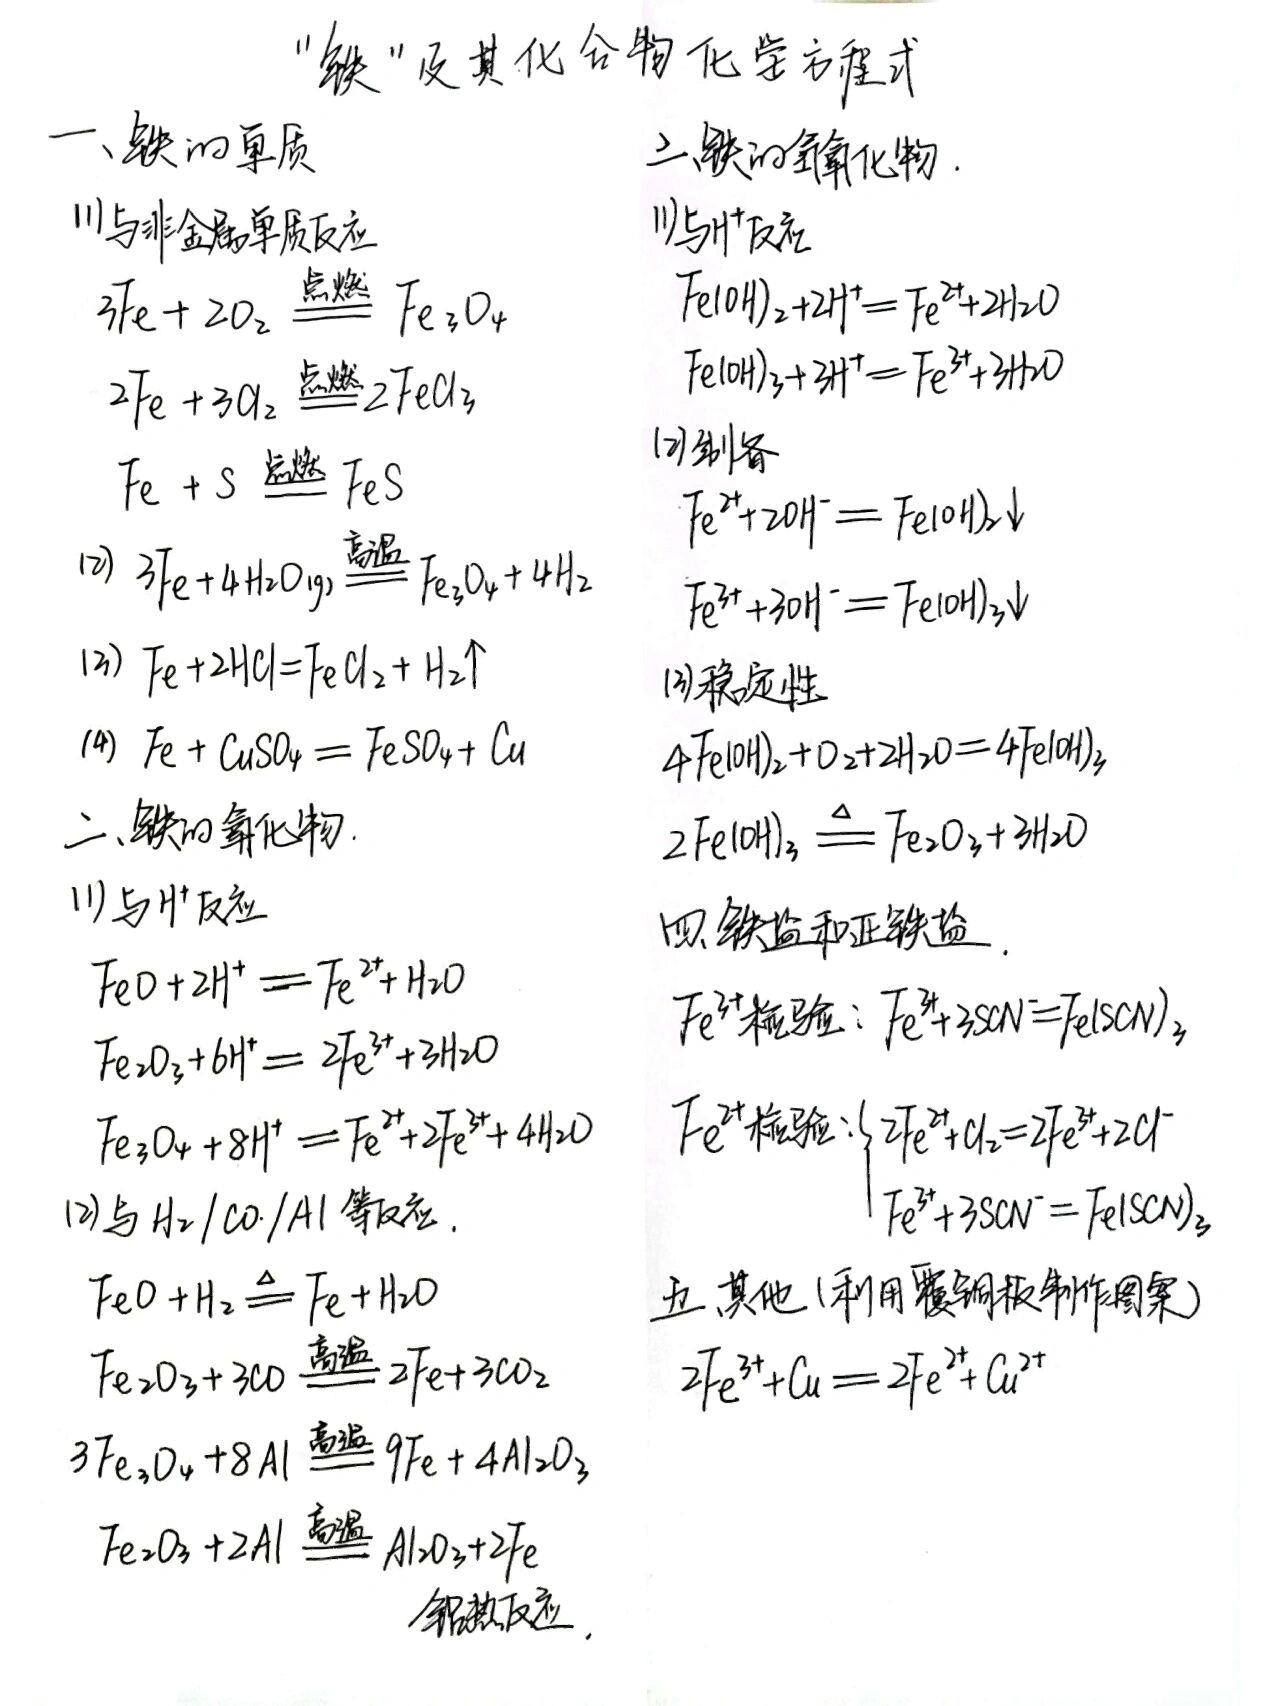 "铁"及其化合物化学方程式
一、铁的单质
(1)与非金属单质反应
3Fe + 2O₂ 点燃 Fe₃O₄
2Fe + 3Cl₂ 点燃 2FeCl₃
Fe + S 点燃 FeS
(2) 3Fe + 4H₂O(g) 高温 Fe₃O₄ + 4H₂
(3) Fe + 2HCl = FeCl₂ + H₂↑
(4) Fe + CuSO₄ = FeSO₄ + Cu
二、铁的氧化物.
(1)与H⁺反应
FeO + 2H⁺ = Fe²⁺ + H₂O
Fe₂O₃ + 6H⁺ = 2Fe³⁺ + 3H₂O
Fe₃O₄ + 8H⁺ = Fe²⁺ + 2Fe³⁺ + 4H₂O
(2)与H₂/CO/Al等反应.
FeO + H₂ △ Fe + H₂O
Fe₂O₃ + 3CO 高温 2Fe + 3CO₂
3Fe₃O₄ + 8Al 高温 9Fe + 4Al₂O₃
Fe₂O₃ + 2Al 高温 Al₂O₃ + 2Fe
铝热反应.
三、铁的氢氧化物.
(1)与H⁺反应
Fe(OH)₂ + 2H⁺ = Fe²⁺ + 2H₂O
Fe(OH)₃ + 3H⁺ = Fe³⁺ + 3H₂O
(2)制备
Fe²⁺ + 2OH⁻ = Fe(OH)₂↓
Fe³⁺ + 3OH⁻ = Fe(OH)₃↓
(3)稳定性
4Fe(OH)₂ + O₂ + 2H₂O = 4Fe(OH)₃
2Fe(OH)₃ △ Fe₂O₃ + 3H₂O
四、铁盐和亚铁盐.
Fe³⁺检验: Fe³⁺ + 3SCN⁻ = Fe(SCN)₃
Fe²⁺检验: { 2Fe²⁺ + Cl₂ = 2Fe³⁺ + 2Cl⁻
Fe³⁺ + 3SCN⁻ = Fe(SCN)₃
五、其他(利用覆铜板制作图案)
2Fe³⁺ + Cu = 2Fe²⁺ + Cu²⁺